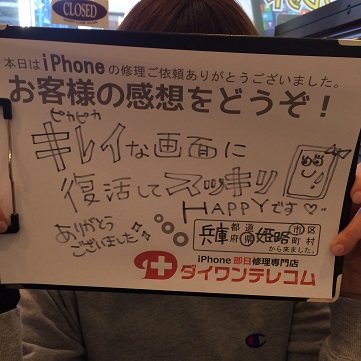 CLOSED
本日はiPhoneの修理ご依頼ありがとうございました。
お客様の感想をどうぞ！
ピカピカ
キレイな画面に
復活してスッキリ
HAPPYです♡
ありがとう
ございました
兵庫 都道府県 姫路 市区町村
から来ました。
iPhone 即日修理専門店
ダイワンテレコム